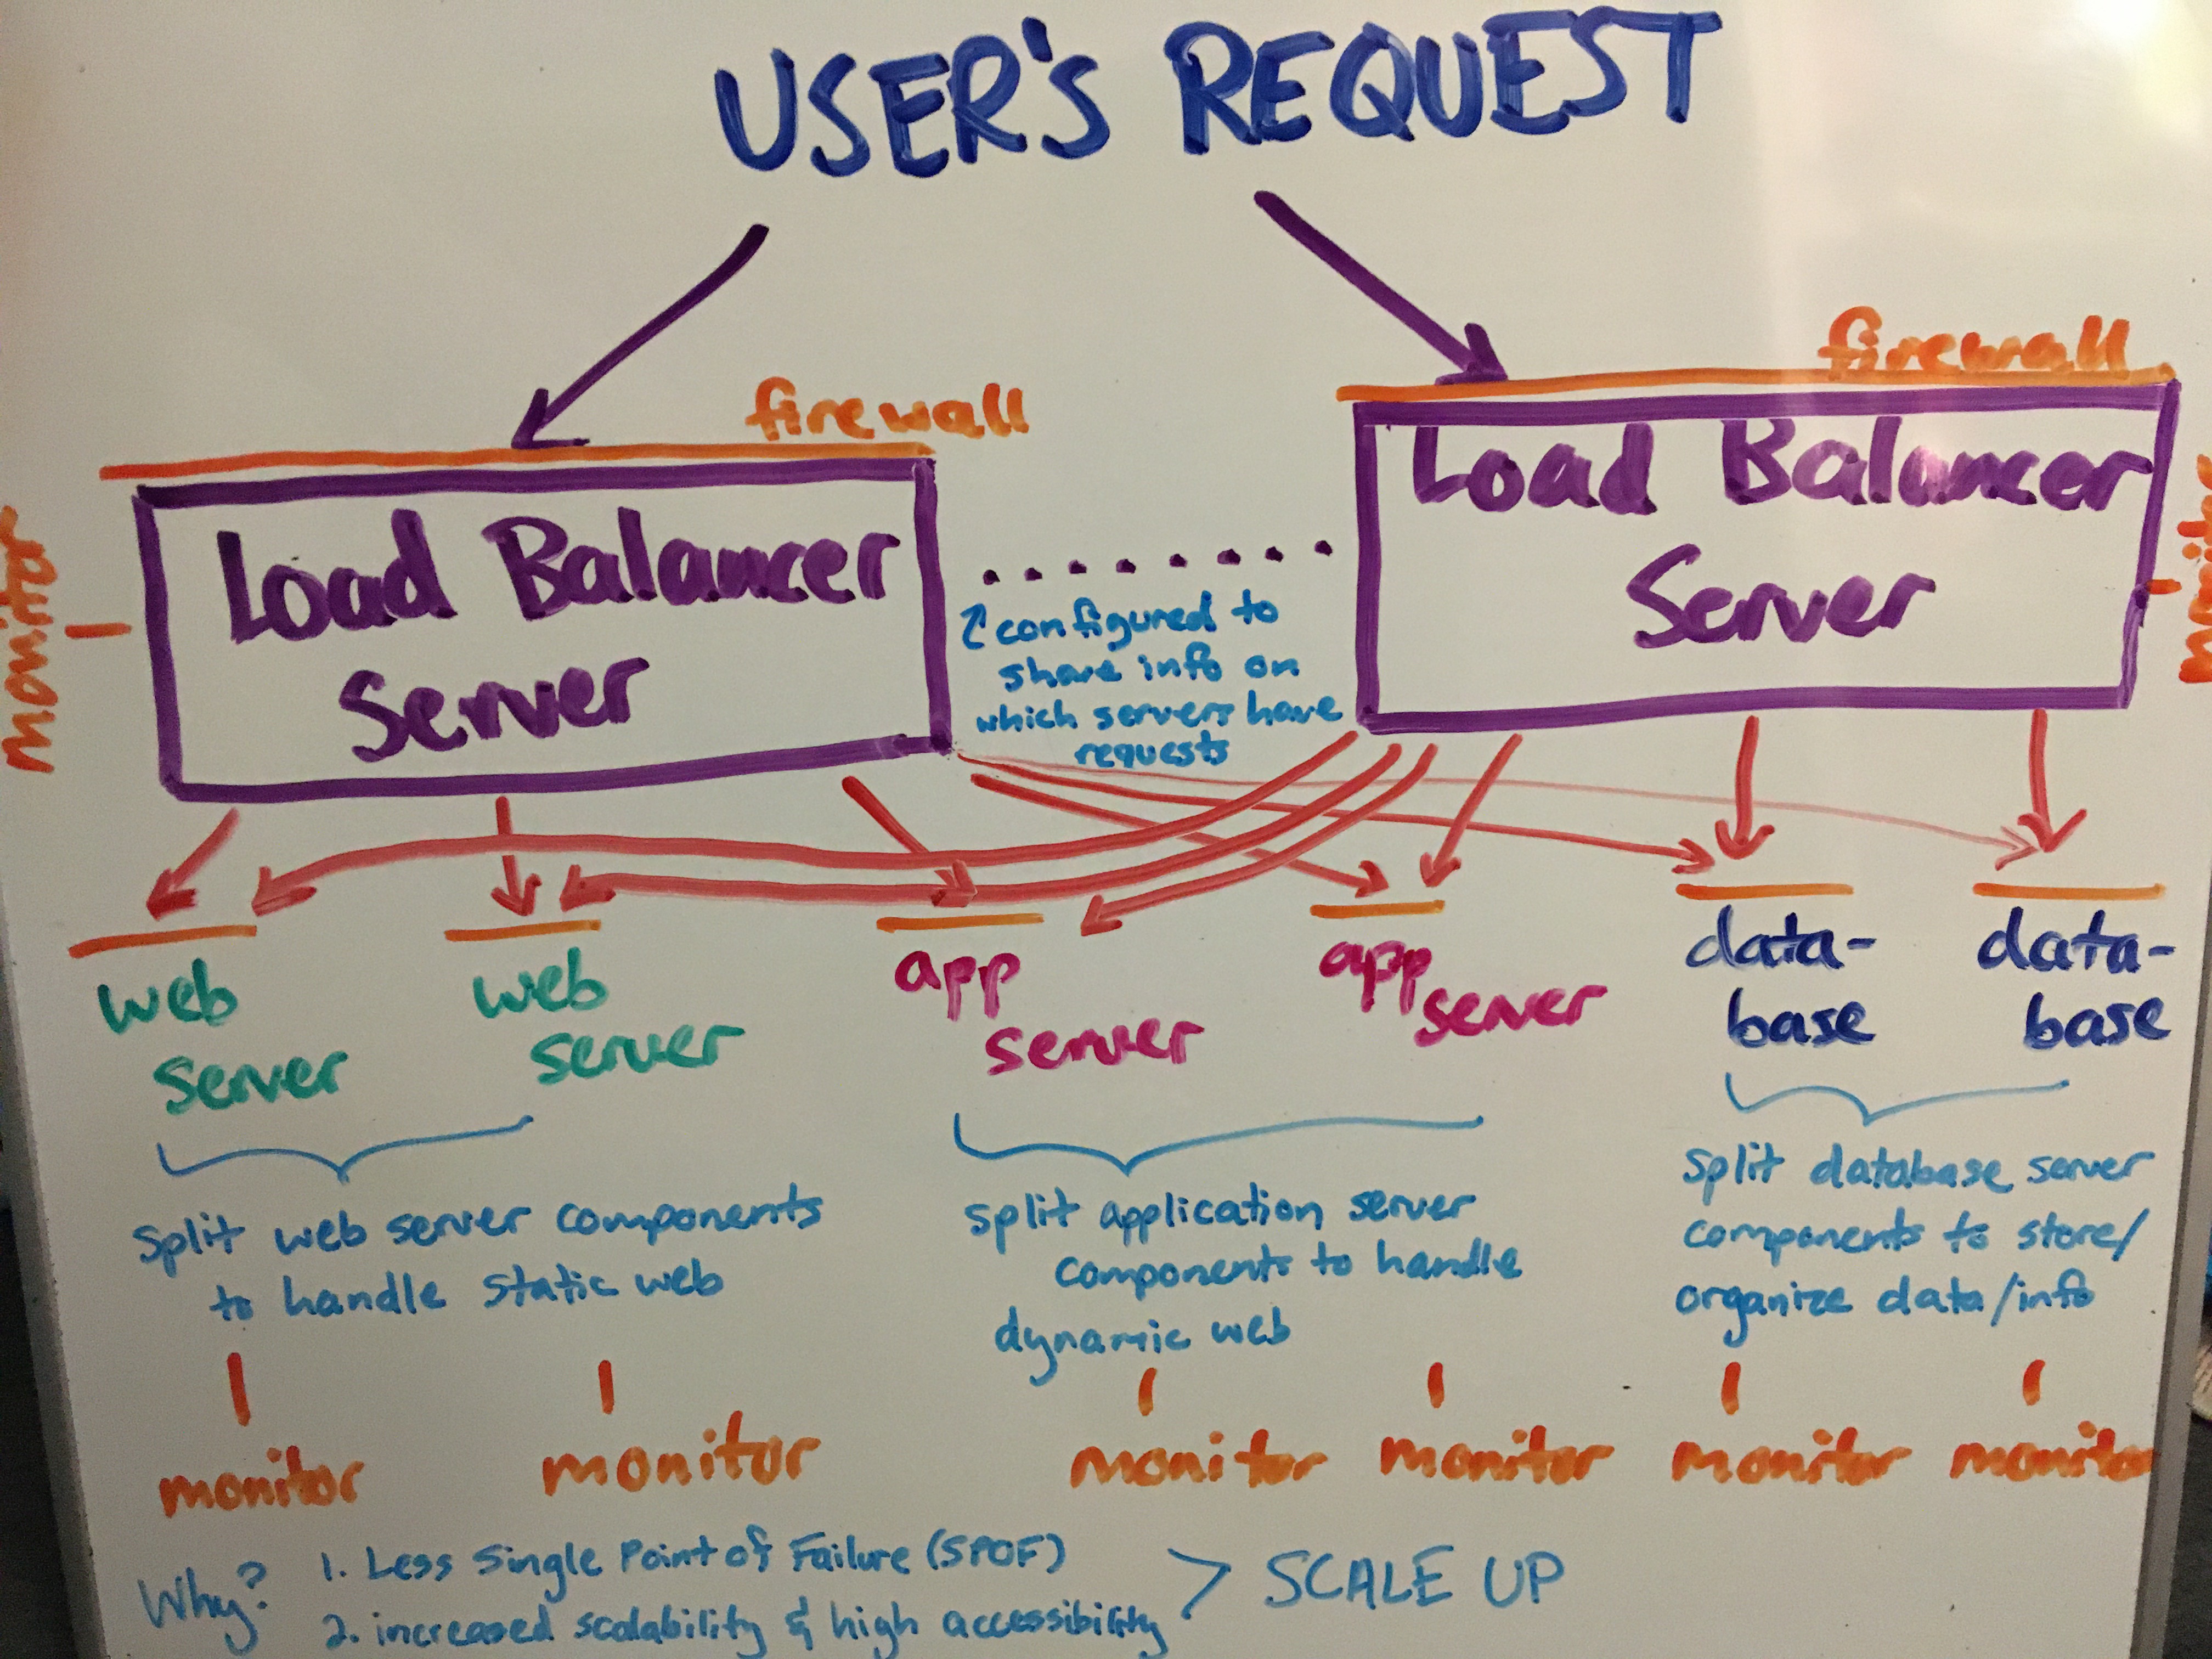 USER'S REQUEST
firewall
firewall
Load Balancer
Server
Load Balancer
Server
monitor
configured to
share info on
which servers have
requests
web
server
web
server
app
server
app
server
data-
base
data-
base
split web server components
to handle static web
split application server
components to handle
dynamic web
split database server
components to store/
organize data/info
monitor
monitor
monitor
monitor
monitor
monitor
Why?
1. Less Single Point of Failure (SPOF)
2. increased scalability & high accessibility
> SCALE UP